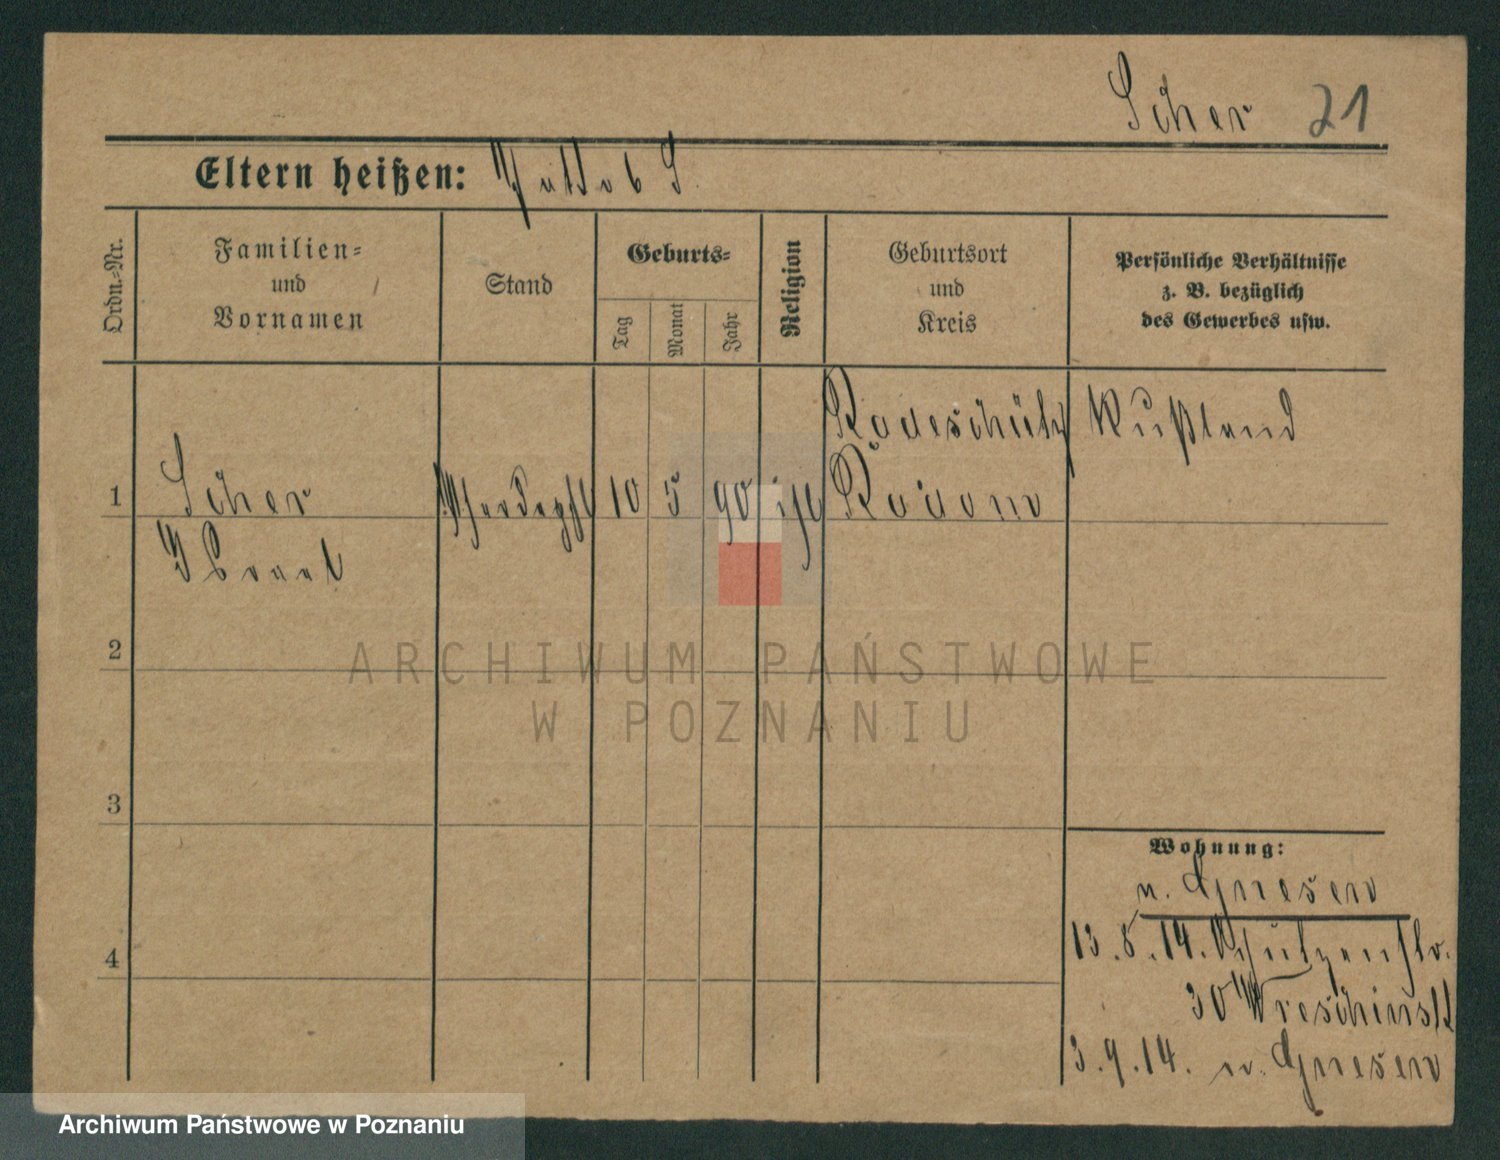 Scher 21
Eltern heißen:
Ordn.-Nr.
Familien-
und
Vornamen
Stand
Geburts-
Tag
Monat
Jahr
Religion
Geburtsort
und
Kreis
Persönliche Verhältnisse
z. B. bezüglich
des Gewerbes usw.
Radeschütz Rußland
1 Scher 10 5 90 isr Radom
2
3
4
ARCHIWUM PAŃSTWOWE
W POZNANIU
Wohnung:
n. Gnesen
13.8.14. Schützenstr.
30 Wreschinski
3.9.14. n. Gnesen
Archiwum Państwowe w Poznaniu